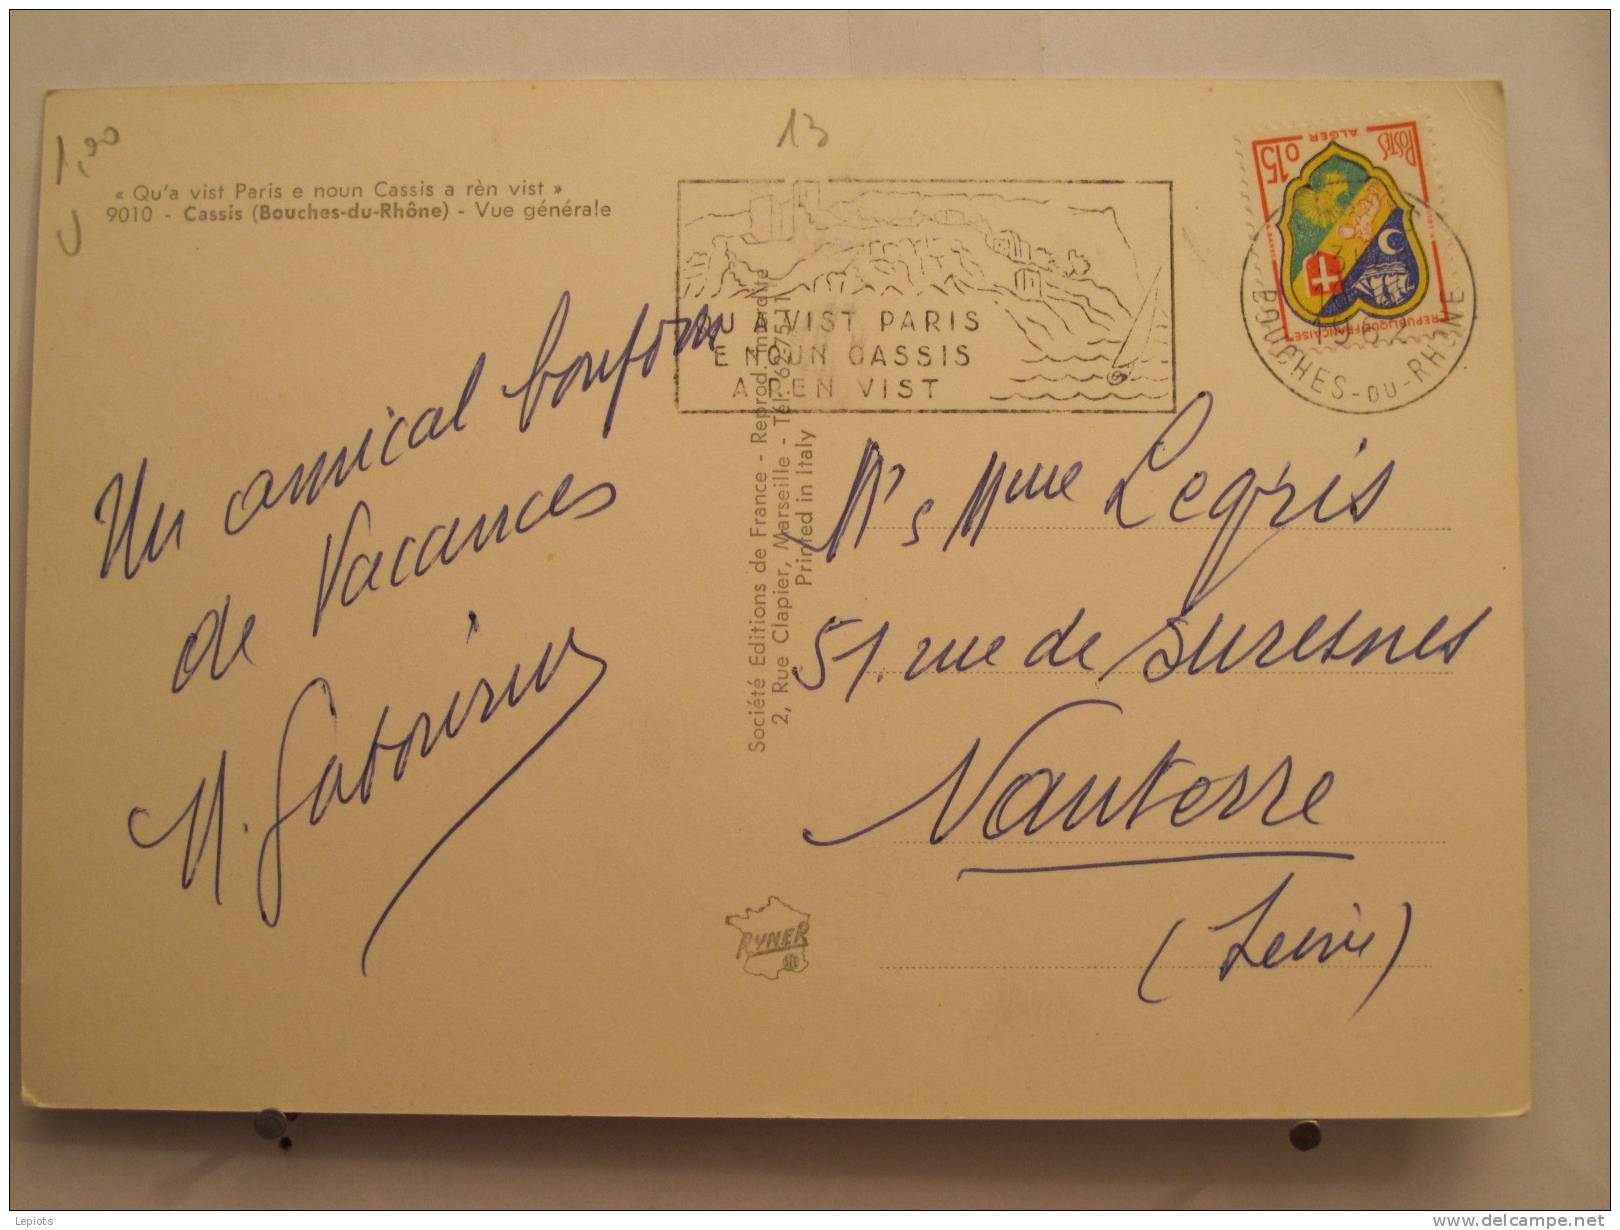 1,90
U
13
« Qu'a vist Paris e noun Cassis a rèn vist »
9010 - Cassis (Bouches-du-Rhône) - Vue générale
QU'A VIST PARIS
E NOUN CASSIS
A REN VIST
POSTES
ALGER
0,15
REPUBLIQUE FRANÇAISE
BOUCHES-DU-RHONE
Un amical bonjour
de Vacances
Société Editions de France - Reprod. interdite
2, Rue Clapier, Marseille - Tél. 62-75-11
Printed in Italy
Mr & Mme Legris
51. rue de Suresnes
Nanterre
(Seine)
RYNER
Lepiots
www.delcampe.net